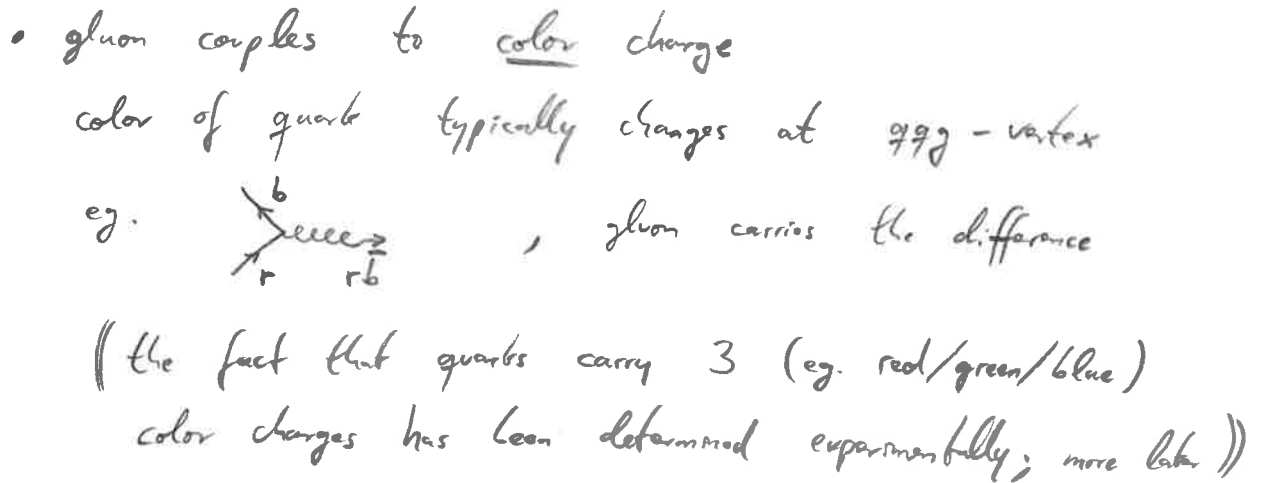 • gluon couples to color charge
color of quark typically changes at qqg-vertex
eg.
b
r
rb̄
, gluon carries the difference
((the fact that quarks carry 3 (eg. red/green/blue)
color charges has been determined experimentally; more later))